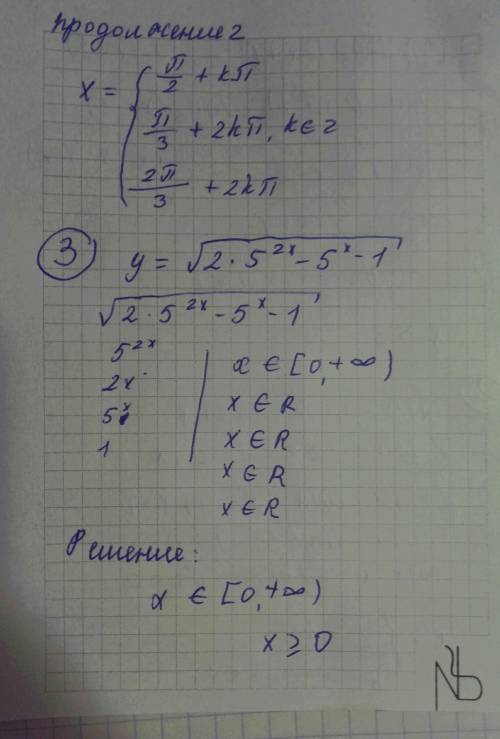 продолжение 2
x = { π/2 + kπ
π/3 + 2kπ, k ∈ z
2π/3 + 2kπ
③ y = √(2 · 5^(2x) − 5^x − 1)
√(2 · 5^(2x) − 5^x − 1)
5^(2x) | x ∈ [0, +∞)
2x | x ∈ R
5^x | x ∈ R
1 | x ∈ R
x ∈ R
Решение:
x ∈ [0, +∞)
x ≥ 0